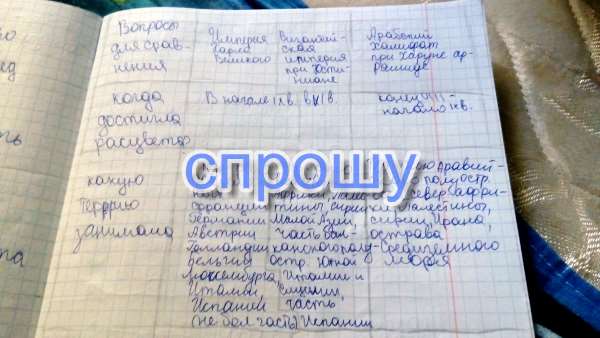 Вопросы для срав- нения
Империя Карла Великого
Византий- ская империя при Юсти- ниане
Арабский Халифат при Харуне ар- Рашиде
когда достигла расцвета
В начале IXв.
в VIв.
конец VIII- начало IXв.
спрошу
какую террию занимала
Франции
Германии
Австрии
Голландии
Бельгии
Люксембурга,
Италии,
Испании
(не бол часть)
тины, Сирии
Малой Азии,
часть Бал-
канского полу-
остр. Южной
Италии и
Сицилии,
часть
Испании
Аравий
полуостр.
север Афри-
ки, Палестины,
Сирии, Ирана,
острова
Средиземного
моря